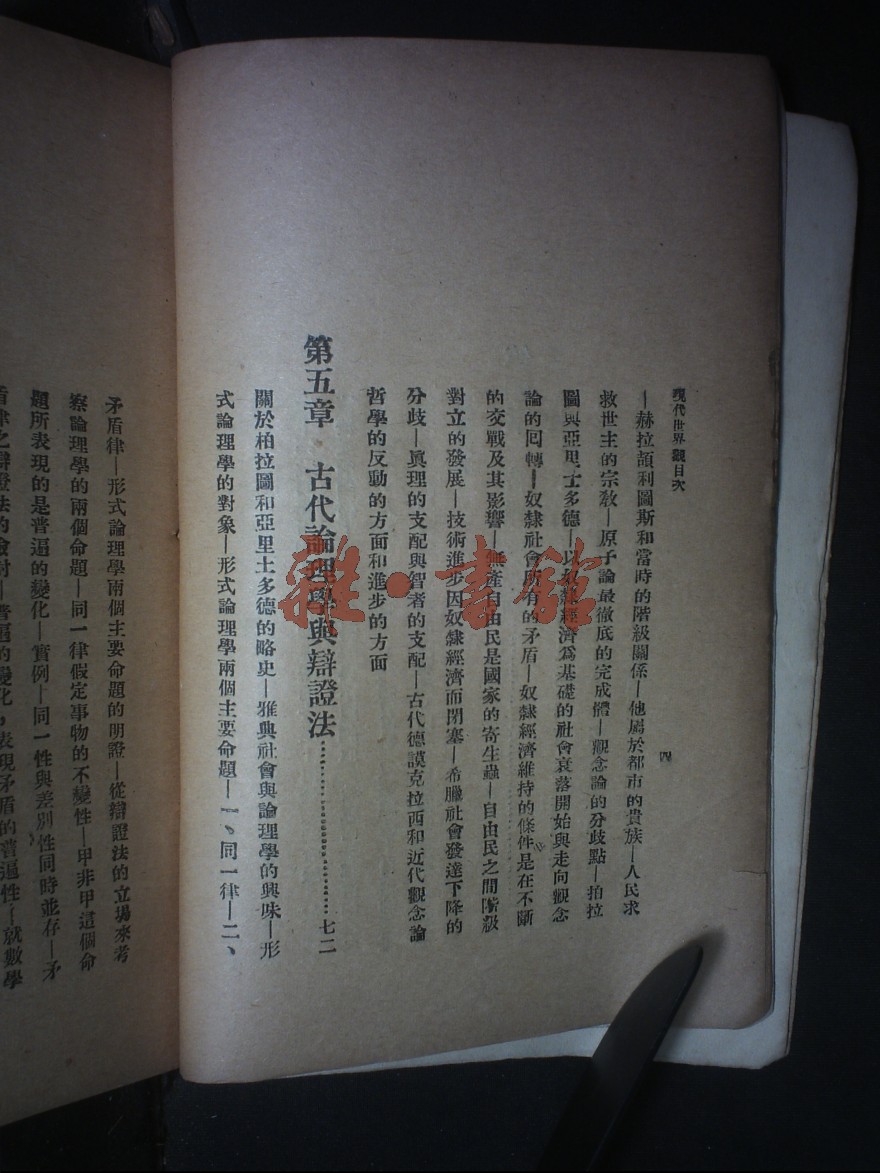 現代世界觀目次
四
—赫拉頡利圖斯和當時的階級關係—他屬於都市的貴族—人民求
救世主的宗教—原子論最徹底的完成體—觀念論的分歧點—拍拉
圖與亞里士多德—以奴隸經濟爲基礎的社會衰落開始與走向觀念
論的囘轉—奴隸社會所有的矛盾—奴隸經濟維持的條件是在不斷
的交戰及其影響—無產自由民是國家的寄生蟲—自由民之間階級
對立的發展—技術進步因奴隸經濟而閉塞—希臘社會發達下降的
分歧—眞理的支配與智者的支配—古代德謨克拉西和近代觀念論
哲學的反動的方面和進步的方面
第五章 古代論理學與辯證法……………………七二
關於柏拉圖和亞里士多德的略史—雅典社會與論理學的興味—形
式論理學的對象—形式論理學兩個主要命題—一、同一律—二、
矛盾律—形式論理學兩個主要命題的明證—從辯證法的立場來考
察論理學的兩個命題—同一律假定事物的不變性—甲非甲這個命
題所表現的是普遍的變化—實例—同一性與差別性同時並存—矛
盾律之辯證法的檢討—普遍的變化，表現矛盾的普遍性—就數學
雜·書館